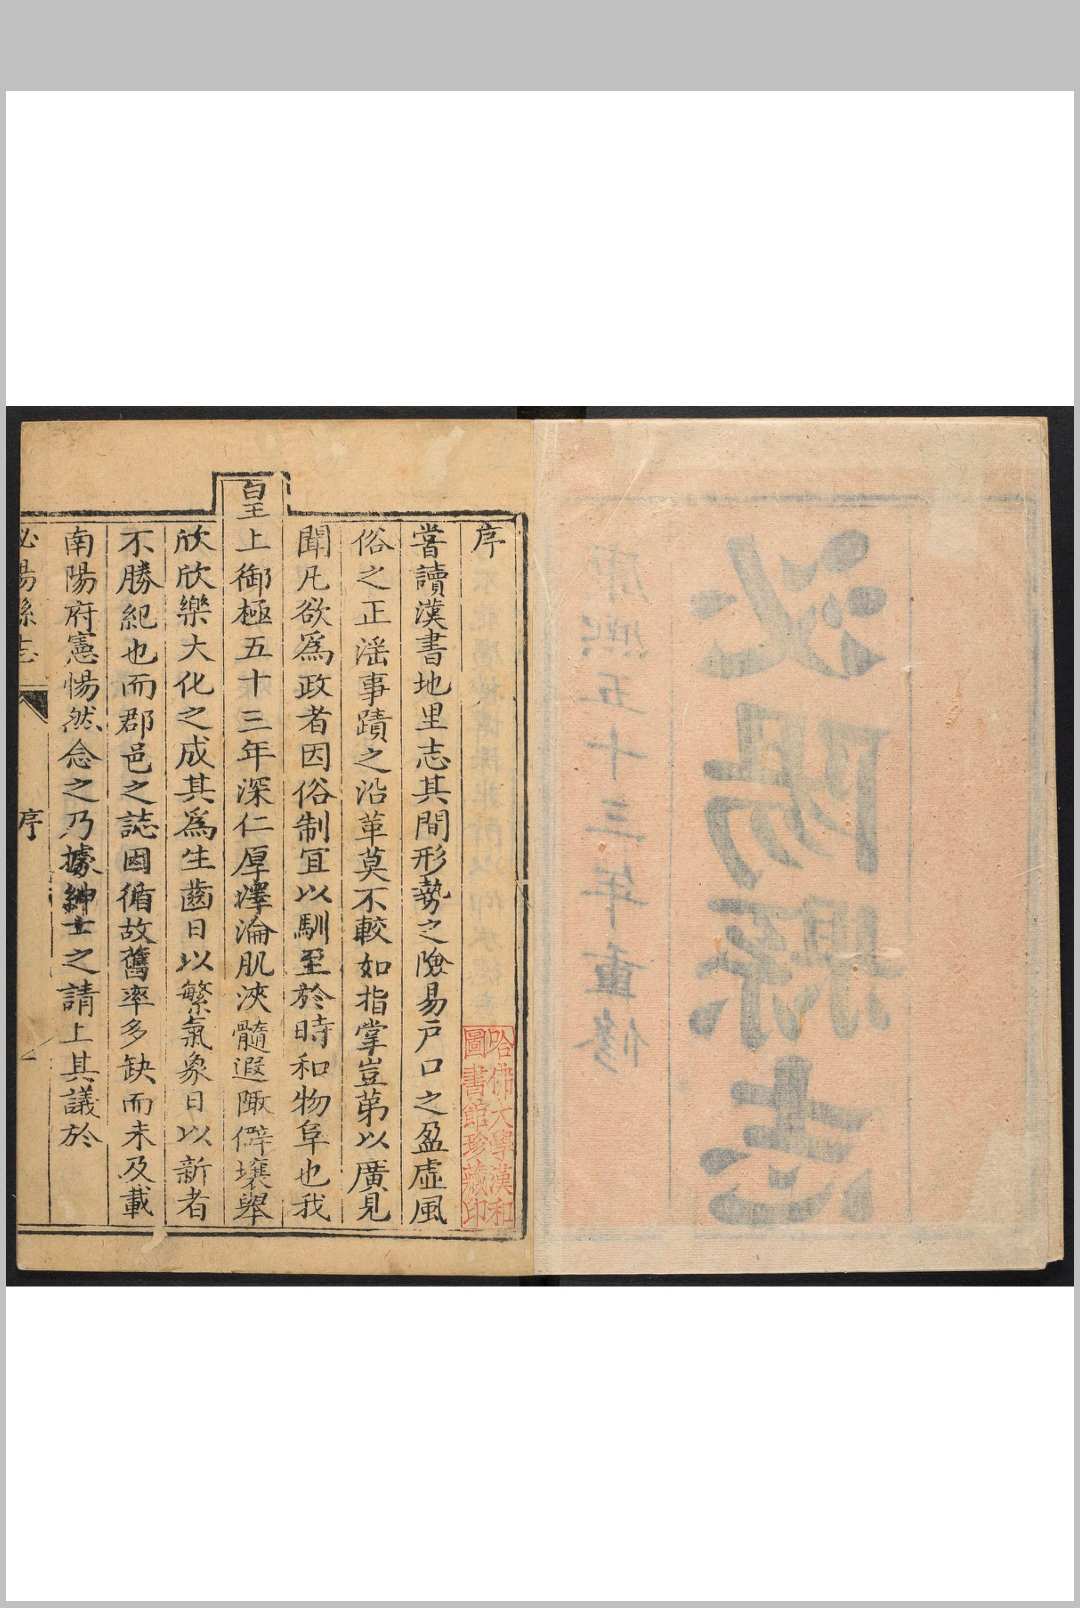 泌陽縣志
康熙五十三年重修
序
哈佛大學漢和
圖書館珍藏印
嘗讀漢書地里志其間形勢之險易戶口之盈虛風
俗之正滛事蹟之沿革莫不較如指掌豈第以廣見
聞凡欲為政者因俗制宜以馴至於時和物阜也我
皇上御極五十三年深仁厚澤淪肌浹髓遐陬僻壤舉
欣欣樂大化之成其為生齒日以繁氣象日以新者
不勝紀也而郡邑之誌因循故舊率多缺而未及載
南陽府憲惕然念之乃據紳士之請上其議於
泌陽縣志
序
一